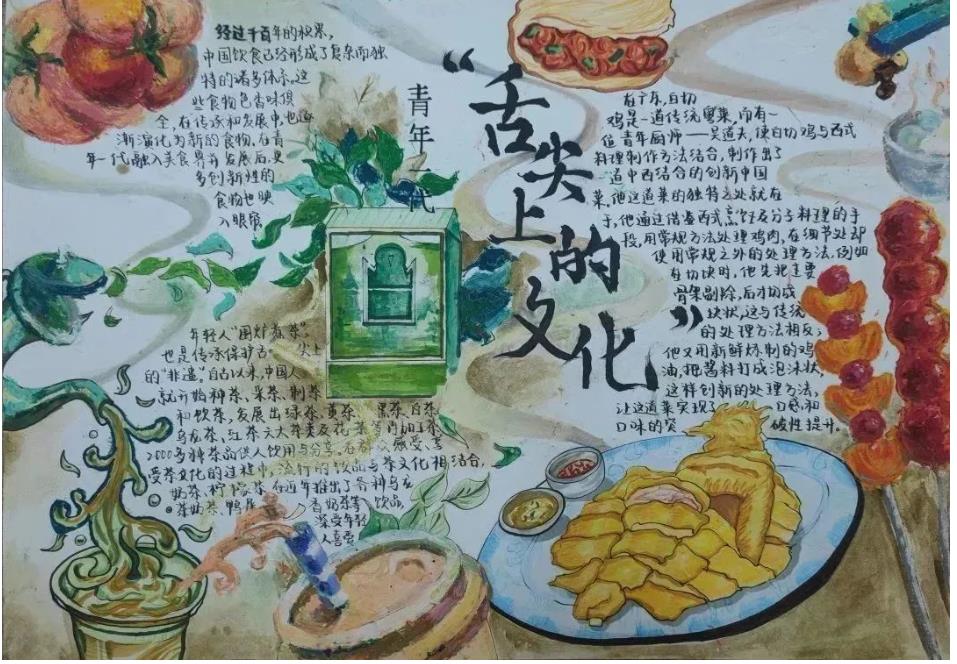 青年一代
“舌尖上的文化”
经过千百年的积累,
中国饮食已经形成了复杂而独
特的诸多体系,这
些食物色香味俱
全,在传承和发展中,也逐
渐演化为新的食物,在青
年一代融入美食界并发展后,更
多创新性的
食物也映
入眼帘
年轻人“围炉煮茶”,
也是传承保护舌尖上
的“非遗”。自古以来,中国人
就开始种茶、采茶、制茶
和饮茶,发展出绿茶、黄茶、黑茶、白茶、
乌龙茶、红茶六大茶类及花茶等再加工茶
2000多种茶品供人饮用与分享。
受茶文化的过程中,流行的饮品与茶文化相结合,
奶茶、柠檬茶在近年推出了各种乌龙
茶奶茶、鸭屎香奶茶等饮品,
深受年轻
人喜爱
在广东,白切
鸡是一道传统粤菜,而有一
位青年厨师——吴道夫,使白切鸡与西式
料理制作方法结合,制作出了
一道中西结合的创新中国
菜,他这道菜的独特之处就在
于,他通过借鉴西式烹饪及分子料理的手
段,用常规方法处理鸡肉,在细节处却
使用常规之外的处理方法,例如
在切块时,他先把主要
骨架剔除,后才切成
块状,这与传统
的处理方法相反;
他又用新鲜炼制的鸡
油,把酱料打成泡沫状,
这样创新的处理方法,
让这道菜实现了口感和
口味的突破性提升。